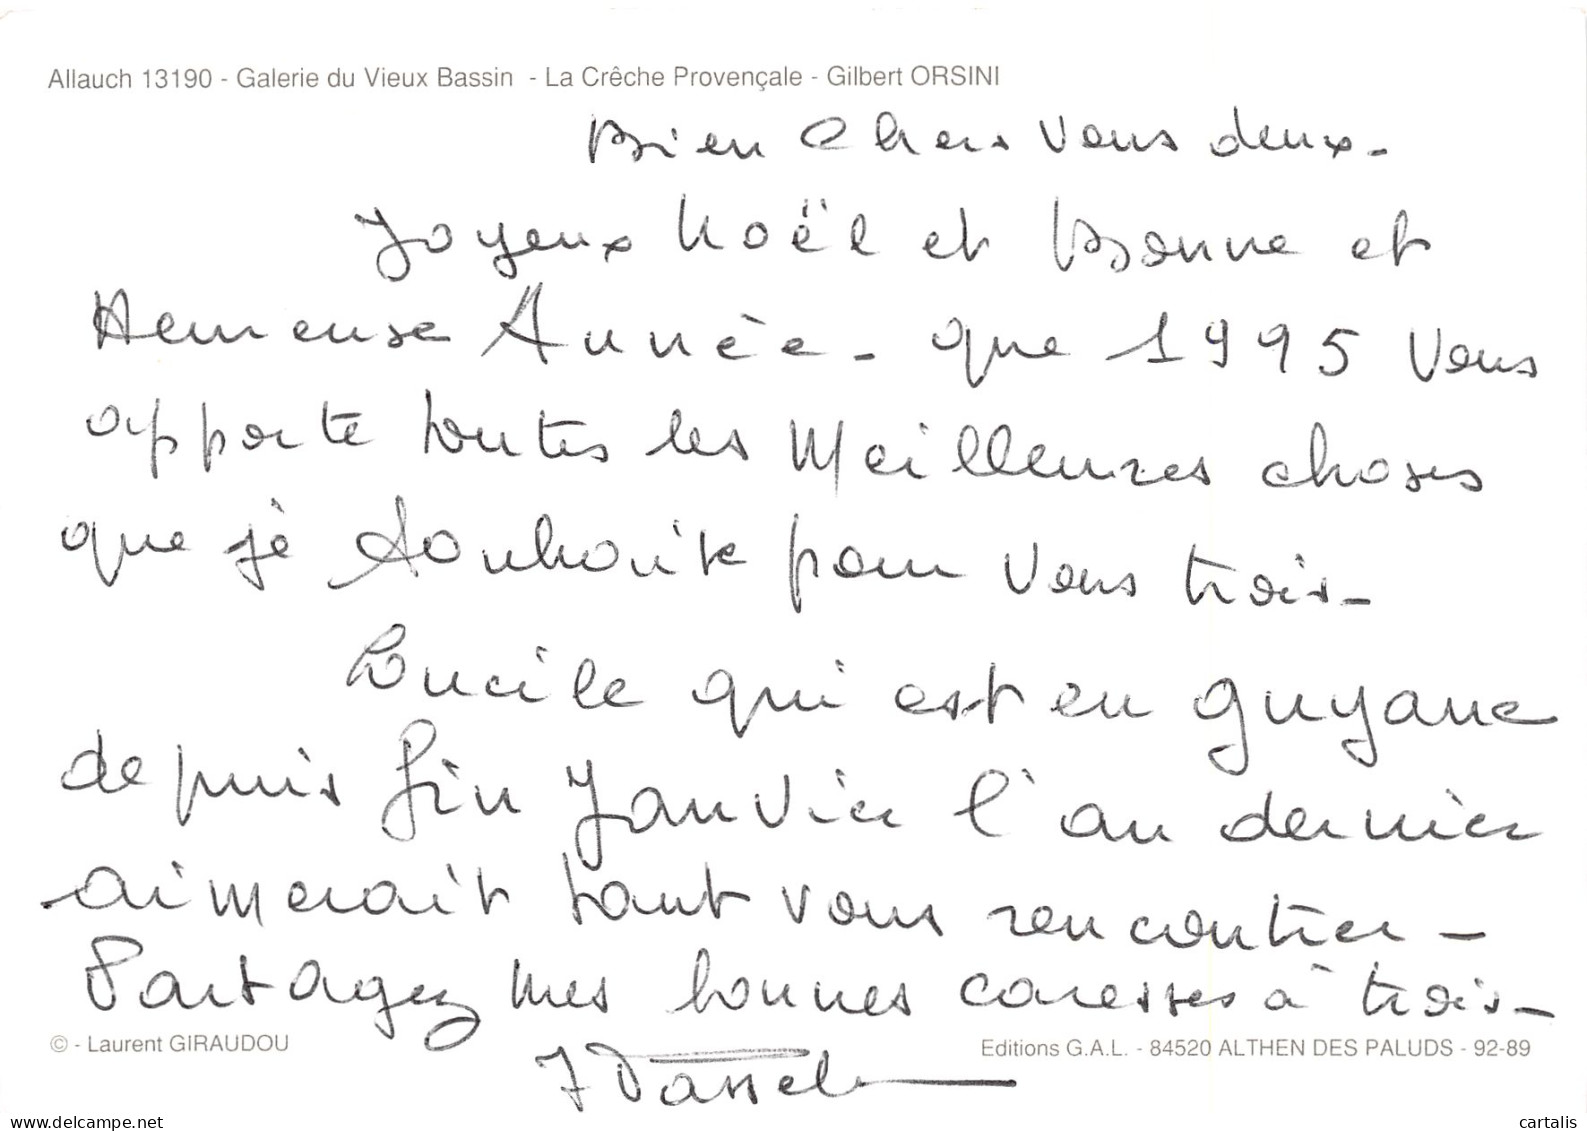 Allauch 13190 - Galerie du Vieux Bassin - La Crêche Provençale - Gilbert ORSINI
Bien chers vous deux -
Joyeux Noël et Bonne et
Heureuse Année - que 1995 vous
apporte toutes les Meilleures choses
que je souhaite pour vous trois -
Lucile qui est en guyane
depuis fin Janvier l'an dernier
aimerait tant vous rencontrer -
Partagez mes bonnes caresses à trois -
© - Laurent GIRAUDOU
Editions G.A.L. - 84520 ALTHEN DES PALUDS - 92-89
delcampe.net
cartalis